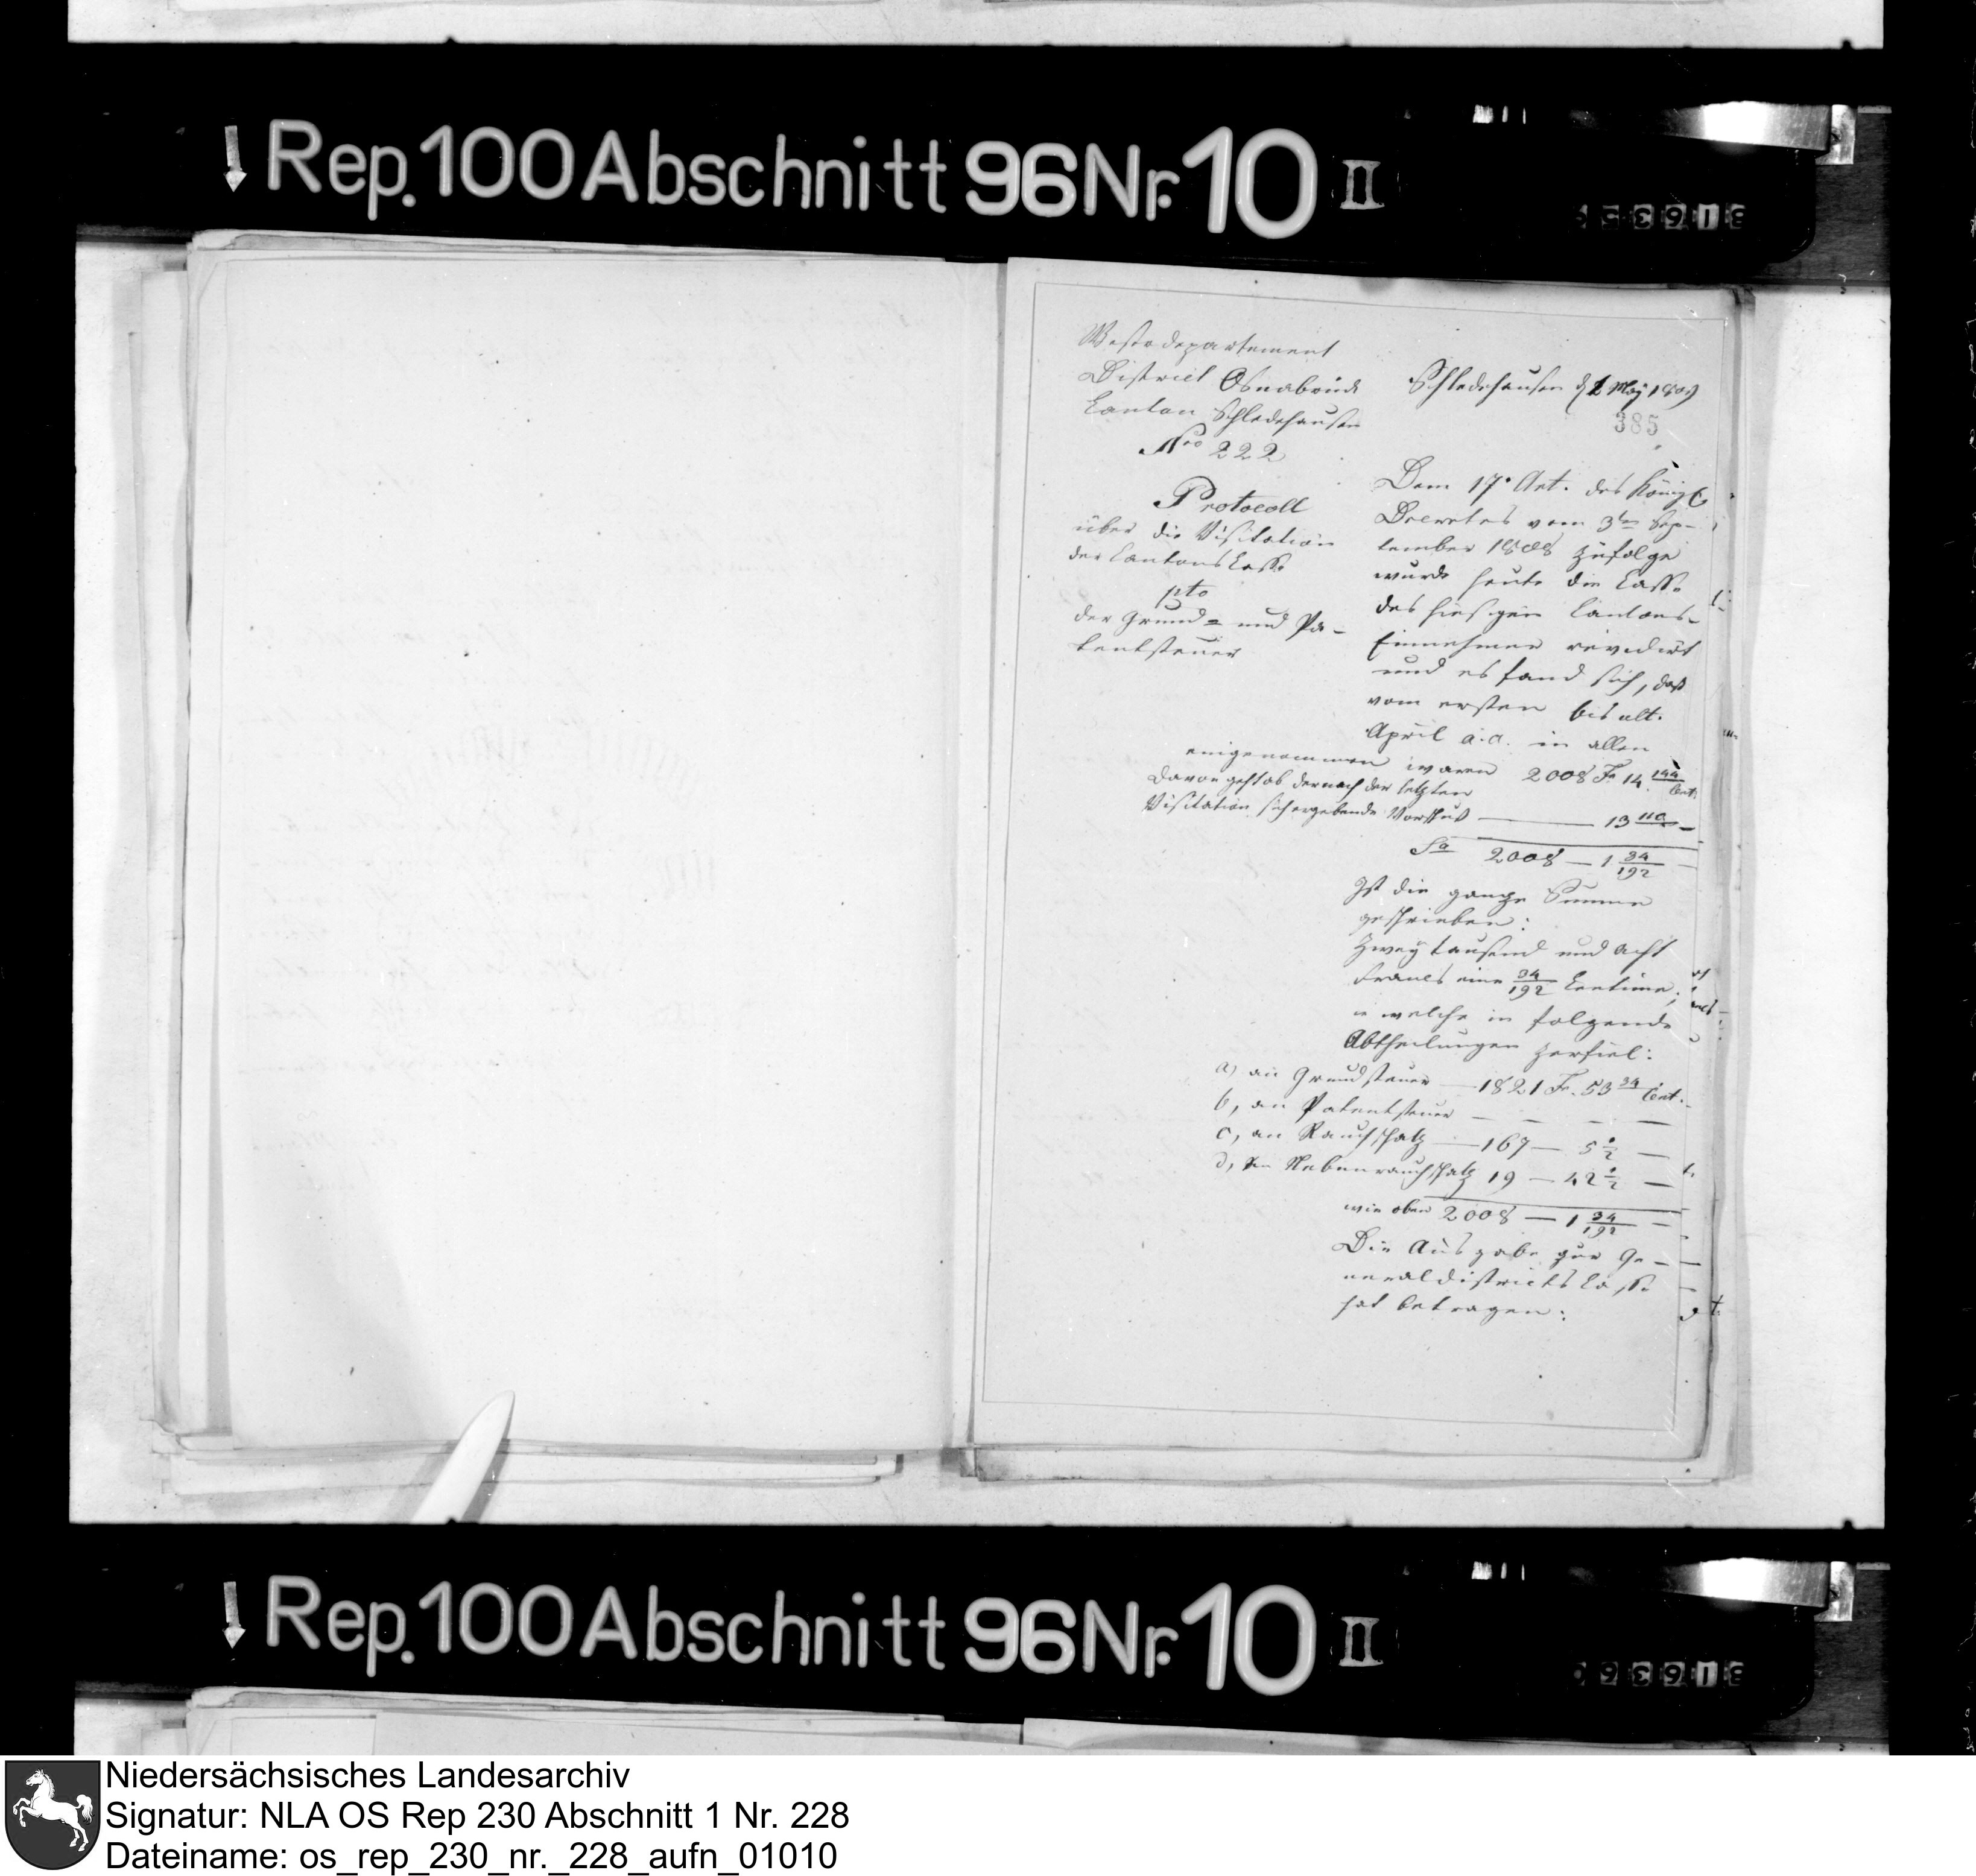 Rep. 100 Abschnitt 96 Nr. 10 II
Weserdepartement
District Osnabrück
Canton Schledehausen
Nro 222
Schledehausen d 1 May 1809
385
Protocoll
über die Visitation
der Cantons Casse
pto
der Grund- und Pa-
tentsteuer
Dem 17. Art. des Königl.
Decretes vom 3ten Sep-
tember 1808 zufolge
wurde heute die Casse
des hiesigen Cantons-
Einnehmer revidirt
und es fand sich, daß
vom ersten bis ult.
April a. c. in allen
eingenommen waren 2008 Fr 14 144 Cent.
Davon geht ab der nach der letzten
Visitation sich ergebende Vorschuß — 13 110 —
Sa 2008 — 1 34/192 —
Ist die ganze Summe
geschrieben:
Zwey tausend und acht
Francs eine 34/192 Centime,
welche in folgende
Abtheilungen zerfiel:
a) an Grundsteuer — 1821 Fr. 53 34 Cent.
b, an Patentsteuer — — — —
c, an Rauchschatz — 167 — 5 1/2 —
d, an Nebenrauchschatz 19 — 42 1/2 —
wie oben 2008 — 1 34/192 —
Die Ausgabe zur Ge-
neraldistricts Casse
hat betragen:
Rep. 100 Abschnitt 96 Nr. 10 II
Niedersächsisches Landesarchiv
Signatur: NLA OS Rep 230 Abschnitt 1 Nr. 228
Dateiname: os_rep_230_nr._228_aufn_01010